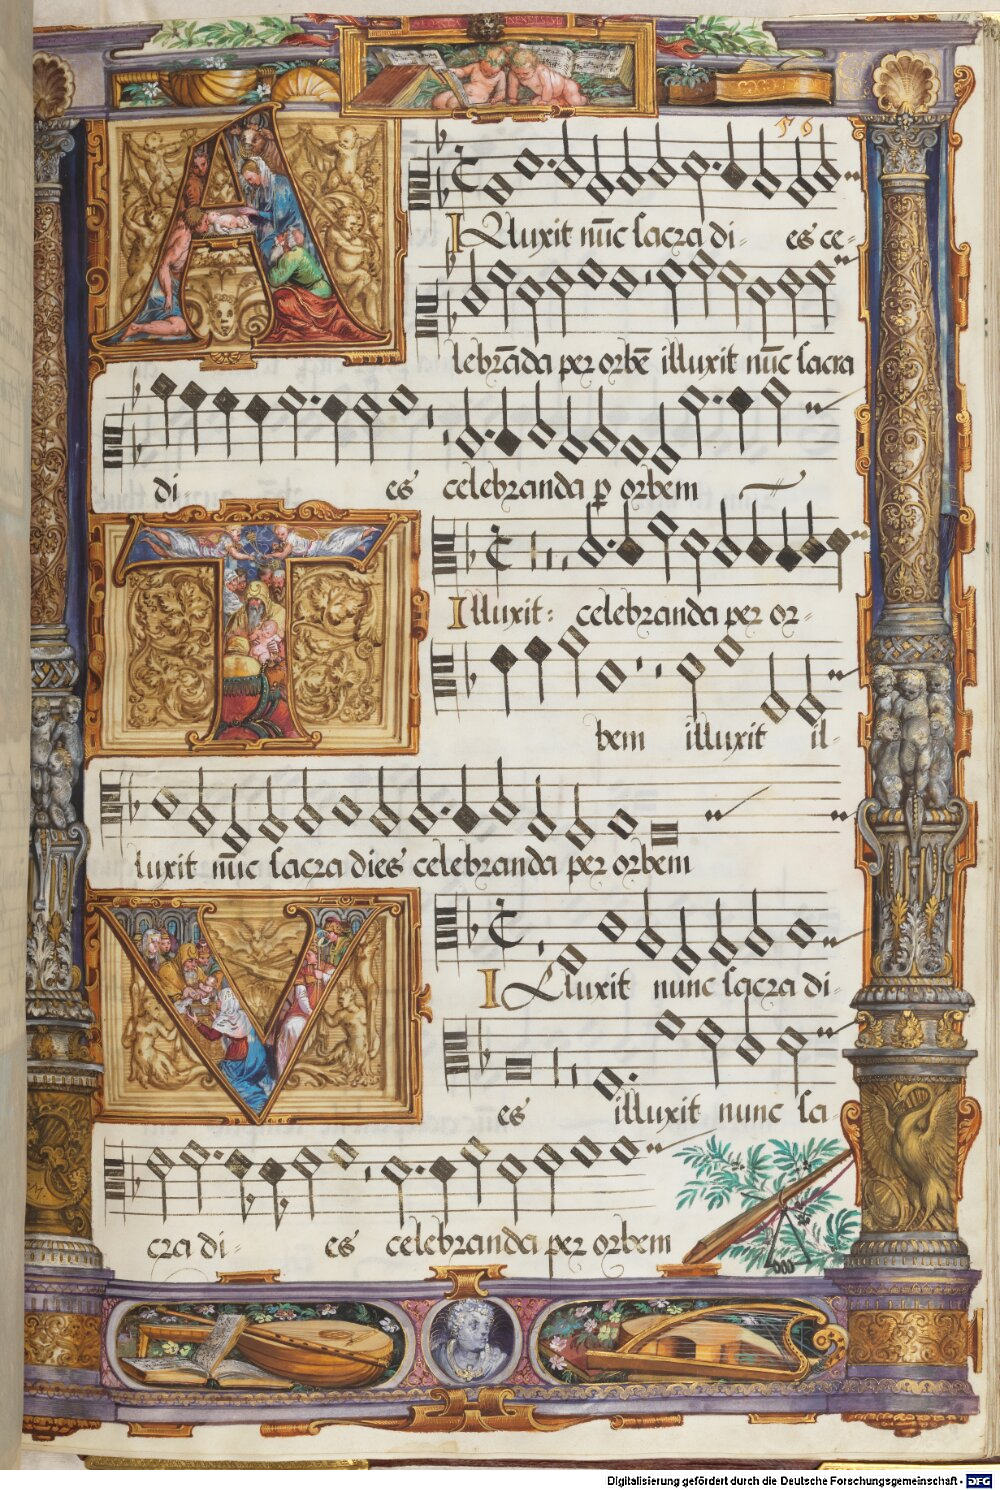 56
Illuxit nūc sacra di= es ce=
lebrāda per orbē illuxit nūc sacra
di es celebranda ꝑ orbem
Illuxit: celebranda per or=
bem illuxit il=
luxit nūc sacra dies celebranda per orbem
Illuxit nunc sacra di=
es illuxit nunc sa=
cra di= es celebranda per orbem
Digitalisierung gefördert durch die Deutsche Forschungsgemeinschaft - DFG